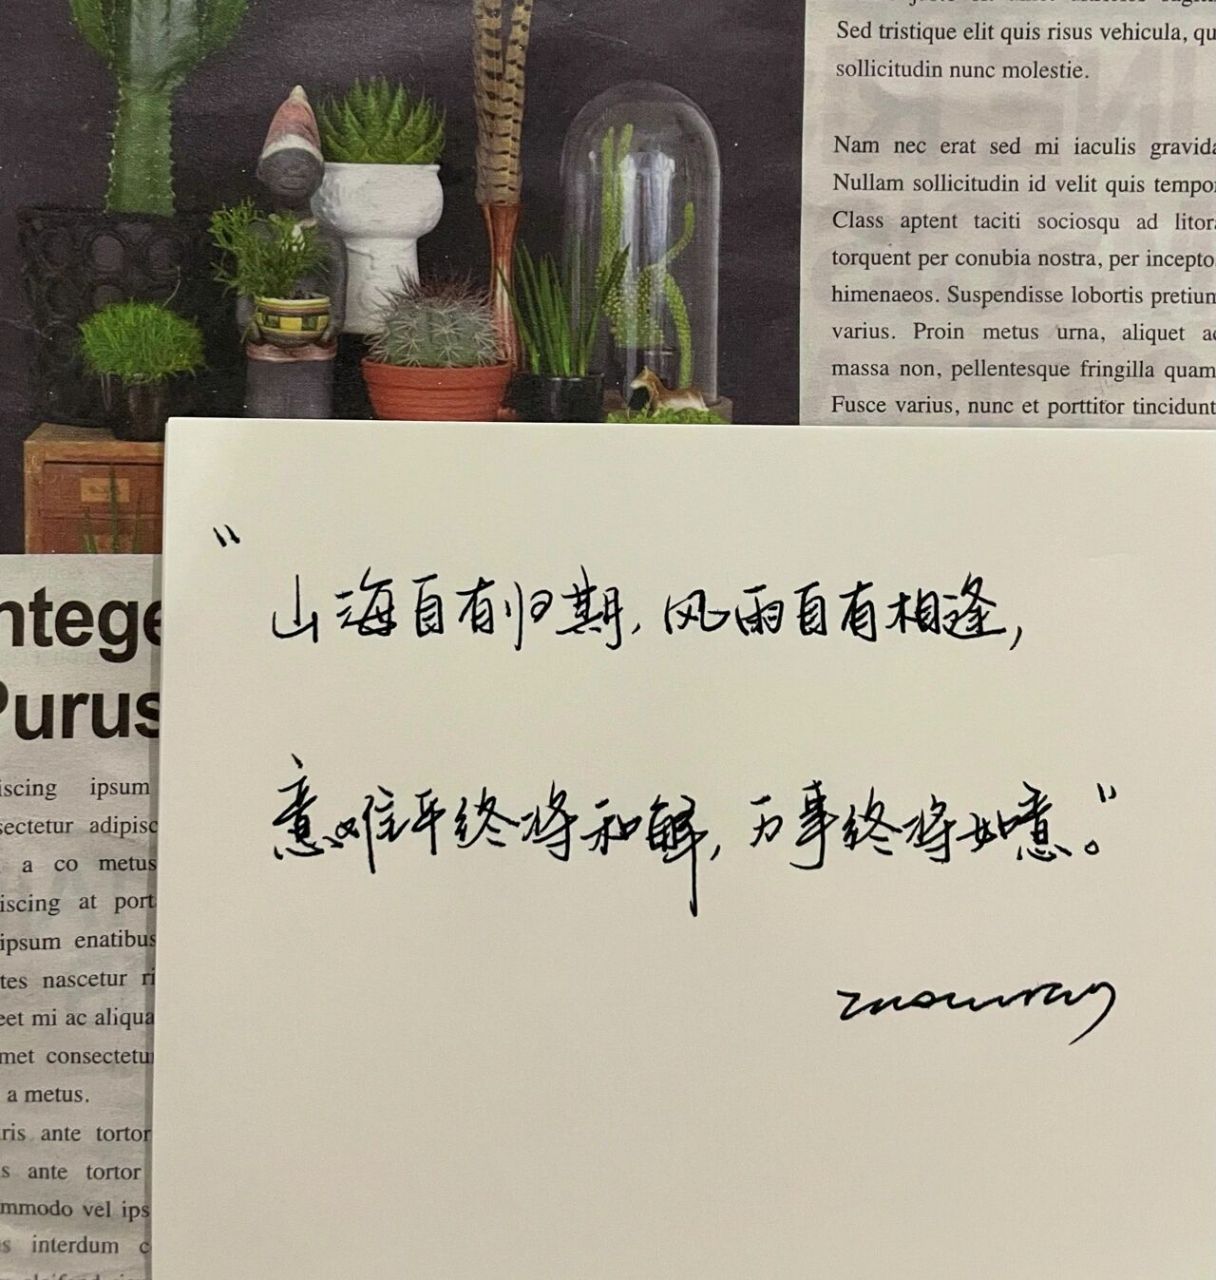 Sed tristique elit quis risus vehicula, qu
sollicitudin nunc molestie.
Nam nec erat sed mi iaculis gravida
Nullam sollicitudin id velit quis tempor
Class aptent taciti sociosqu ad litora
torquent per conubia nostra, per incepto
himenaeos. Suspendisse lobortis pretium
varius. Proin metus urna, aliquet ac
massa non, pellentesque fringilla quam
Fusce varius, nunc et porttitor tincidunt
"山海自有归期,风雨自有相逢,
意难平终将和解,万事终将如意。"
ntege
Purus
iscing ipsum
sectetur adipisc
a co metus
iscing at port
ipsum enatibus
tes nascetur ri
eet mi ac aliqua
met consectetu
a metus.
ris ante tortor
s ante tortor
mmodo vel ips
s interdum c